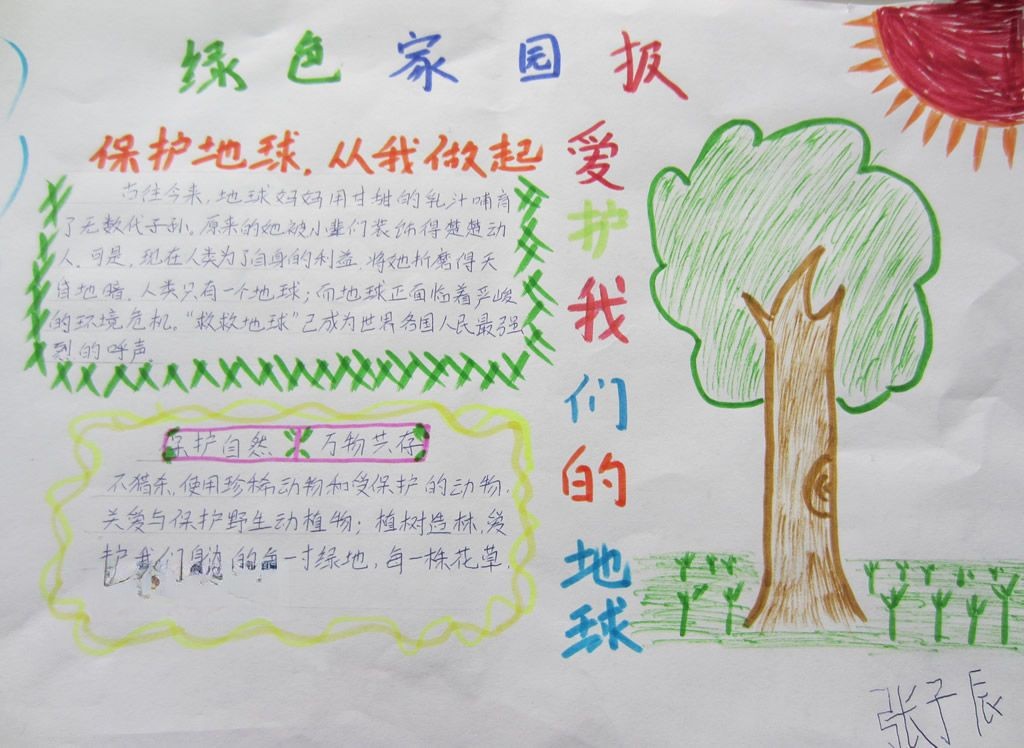 绿色家园报
保护地球，从我做起
古往今来，地球妈妈用甘甜的乳汁哺育
了无数代子孙。原来的她被小辈们装饰得楚楚动
人，可是，现在人类为了自身的利益，将她折磨得天
昏地暗。人类只有一个地球；而地球正面临着严峻
的环境危机。“救救地球”已成为世界各国人民最强
烈的呼声
保护自然 万物共存
不猎杀，使用珍稀动物和受保护的动物，
关爱与保护野生动植物；植树造林，爱
护我们身边的每一寸绿地，每一株花草。
爱护我们的地球
张子辰